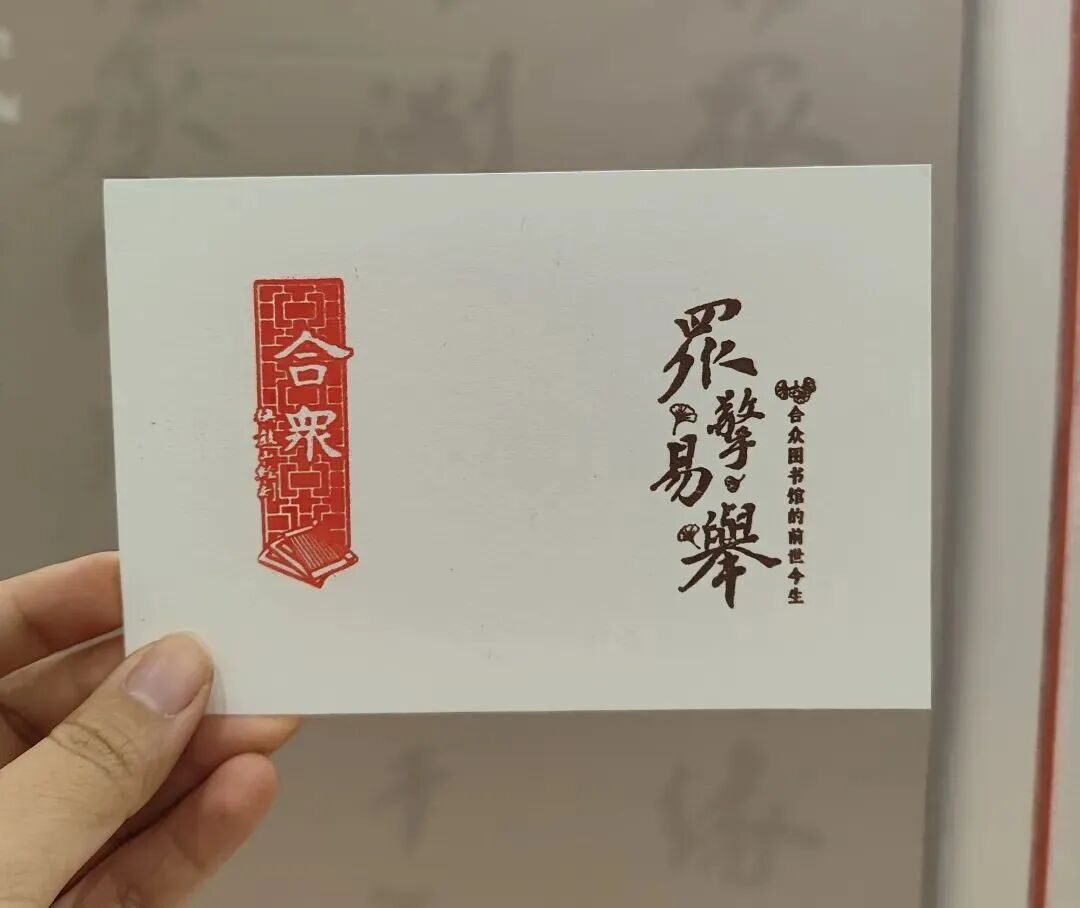 合衆
眾擎易舉
合众图书馆的前世今生